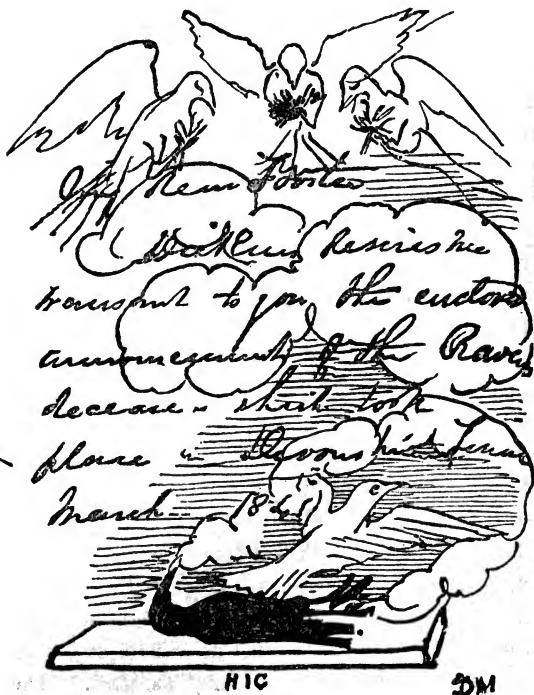 My dear Forster
Dickens desires me
transmit to you the enclosed
announcement of the Ravens
decease – which took
place in Devonshire Terrace
March 184
HIC
DM